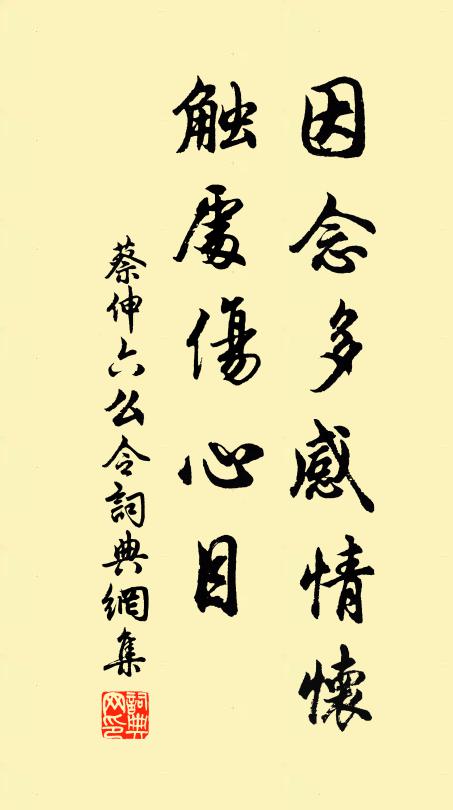 因念多感情懷
触處傷心目
蔡伸六么令詞典網集
詞典網印